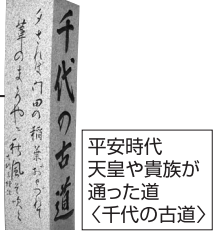 千代の古道
夕されは門田の稲葉おとつれて
葦のまろやに秋風そ吹く
平安時代
天皇や貴族が
通った道
〈千代の古道〉